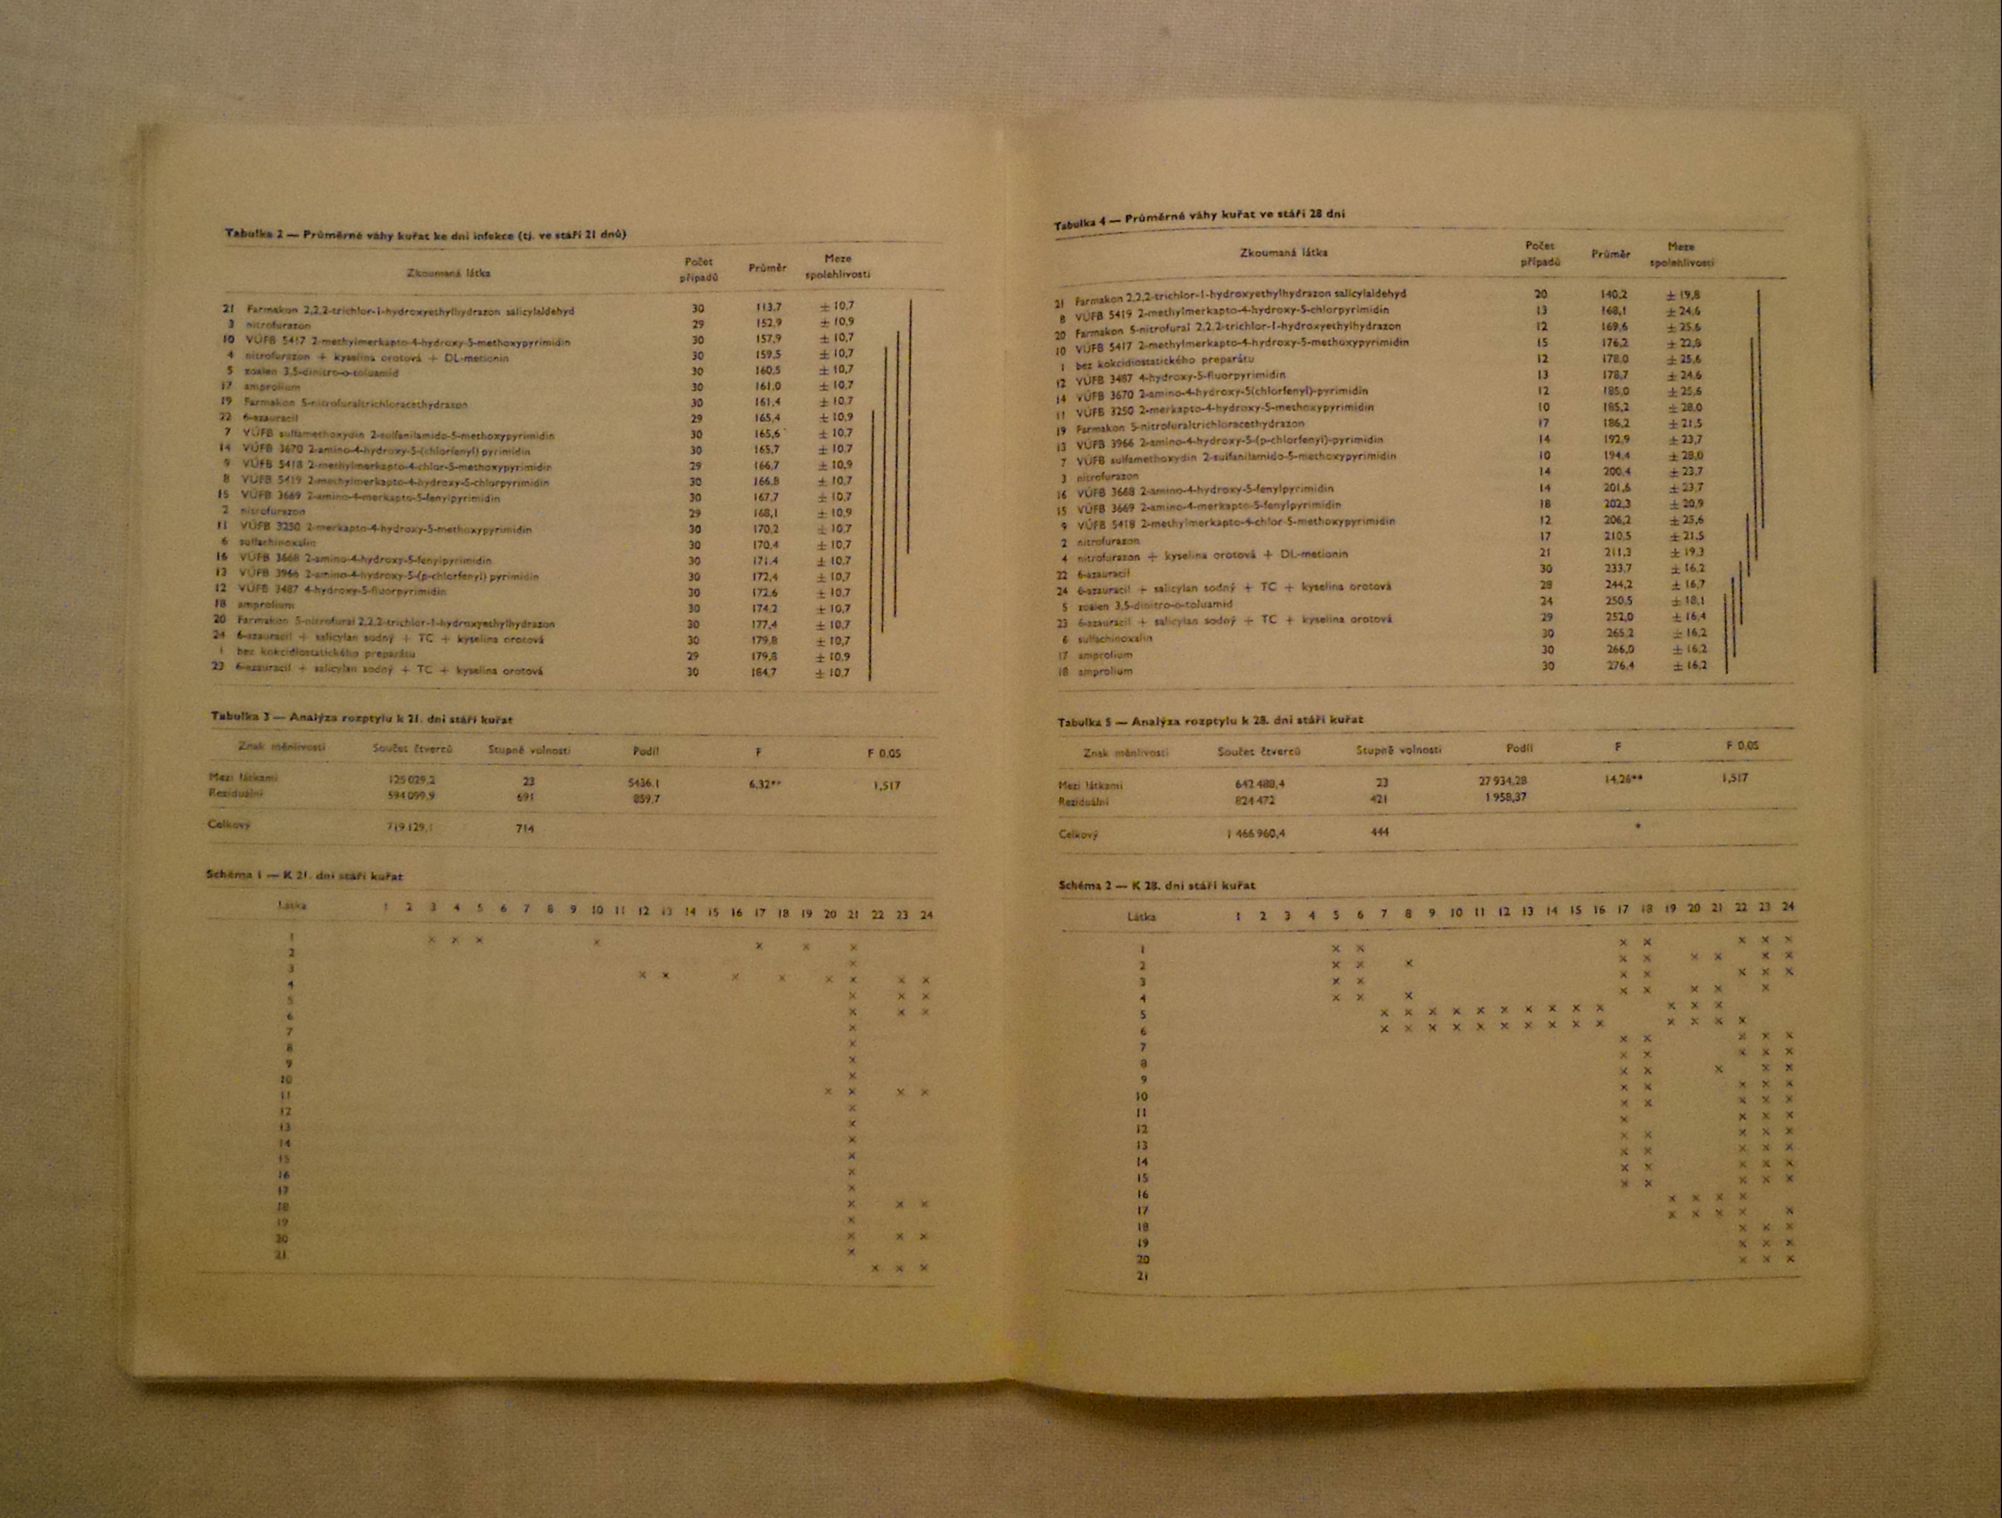 Tabulka 2 — Průměrné váhy kuřat ke dni infekce (tj. ve stáří 21 dnů)
Zkoumaná látka Počet případů Průměr Meze spolehlivosti
21 Farmakon 2,2,2-trichlor-1-hydroxyethylhydrazon salicylaldehyd 30 113,7 ± 10,7
3 nitrofurazon 29 152,9 ± 10,9
10 VÚFB 5417 2-methylmerkapto-4-hydroxy-5-methoxypyrimidin 30 157,9 ± 10,7
4 nitrofurazon + kyselina orotová + DL-metionin 30 159,5 ± 10,7
5 zoalen 3,5-dinitro-o-toluamid 30 160,5 ± 10,7
17 amprolium 30 161,0 ± 10,7
19 Farmakon 5-nitrofuraltrichloracethydrazon 30 161,4 ± 10,7
22 6-azauracil 29 165,4 ± 10,9
7 VÚFB sulfamethoxydin 2-sulfanilamido-5-methoxypyrimidin 30 165,6 ± 10,7
14 VÚFB 3670 2-amino-4-hydroxy-5-(chlorfenyl) pyrimidin 30 165,7 ± 10,7
9 VÚFB 5418 2-methylmerkapto-4-chlor-5-methoxypyrimidin 29 166,7 ± 10,9
8 VÚFB 5419 2-methylmerkapto-4-hydroxy-5-chlorpyrimidin 30 166,8 ± 10,7
15 VÚFB 3669 2-amino-4-merkapto-5-fenylpyrimidin 30 167,7 ± 10,7
2 nitrofurazon 29 168,1 ± 10,9
11 VÚFB 3250 2-merkapto-4-hydroxy-5-methoxypyrimidin 30 170,2 ± 10,7
6 sulfachinoxalin 30 170,4 ± 10,7
16 VÚFB 3668 2-amino-4-hydroxy-5-fenylpyrimidin 30 171,4 ± 10,7
13 VÚFB 3966 2-amino-4-hydroxy-5-(p-chlorfenyl) pyrimidin 30 172,4 ± 10,7
12 VÚFB 3487 4-hydroxy-5-fluorpyrimidin 30 172,6 ± 10,7
18 amprolium 30 174,2 ± 10,7
20 Farmakon 5-nitrofural 2,2,2-trichlor-1-hydroxyethylhydrazon 30 177,4 ± 10,7
24 6-azauracil + salicylan sodný + TC + kyselina orotová 30 179,8 ± 10,7
1 bez kokcidiostatického preparátu 29 179,8 ± 10,9
23 6-azauracil + salicylan sodný + TC + kyselina orotová 30 184,7 ± 10,7
Tabulka 3 — Analýza rozptylu k 21. dni stáří kuřat
Znak měnlivosti Součet čtverců Stupně volnosti Podíl F F 0,05
Mezi látkami 125 029,2 23 5436,1 6,32** 1,517
Reziduální 594 099,9 691 859,7
Celkový 719 129,1 714
Schéma 1 — K 21. dni stáří kuřat
Látka 1 2 3 4 5 6 7 8 9 10 11 12 13 14 15 16 17 18 19 20 21 22 23 24
1 × × × × × × ×
2 ×
3 × × × × × × × ×
4 × × ×
5 × × ×
6 ×
7 ×
8 ×
9 ×
10 × × × ×
11 ×
12 ×
13 ×
14 ×
15 ×
16 ×
17 × × ×
18 ×
19 × × ×
20 ×
21 × × ×
Tabulka 4 — Průměrné váhy kuřat ve stáří 28 dní
Zkoumaná látka Počet případů Průměr Meze spolehlivosti
21 Farmakon 2,2,2-trichlor-1-hydroxyethylhydrazon salicylaldehyd 20 140,2 ± 19,8
8 VÚFB 5419 2-methylmerkapto-4-hydroxy-5-chlorpyrimidin 13 168,1 ± 24,6
20 Farmakon 5-nitrofural 2,2,2-trichlor-1-hydroxyethylhydrazon 12 169,6 ± 25,6
10 VÚFB 5417 2-methylmerkapto-4-hydroxy-5-methoxypyrimidin 15 176,2 ± 22,8
1 bez kokcidiostatického preparátu 12 178,0 ± 25,6
12 VÚFB 3487 4-hydroxy-5-fluorpyrimidin 13 178,7 ± 24,6
14 VÚFB 3670 2-amino-4-hydroxy-5(chlorfenyl)-pyrimidin 12 185,0 ± 25,6
11 VÚFB 3250 2-merkapto-4-hydroxy-5-methoxypyrimidin 10 185,2 ± 28,0
19 Farmakon 5-nitrofuraltrichloracethydrazon 17 186,2 ± 21,5
13 VÚFB 3966 2-amino-4-hydroxy-5-(p-chlorfenyl)-pyrimidin 14 192,9 ± 23,7
7 VÚFB sulfamethoxydin 2-sulfanilamido-5-methoxypyrimidin 10 194,4 ± 28,0
3 nitrofurazon 14 200,4 ± 23,7
16 VÚFB 3668 2-amino-4-hydroxy-5-fenylpyrimidin 14 201,6 ± 23,7
15 VÚFB 3669 2-amino-4-merkapto-5-fenylpyrimidin 18 202,3 ± 20,9
9 VÚFB 5418 2-methylmerkapto-4-chlor-5-methoxypyrimidin 12 206,2 ± 25,6
2 nitrofurazon 17 210,5 ± 21,5
4 nitrofurazon + kyselina orotová + DL-metionin 21 211,3 ± 19,3
22 6-azauracil 30 233,7 ± 16,2
24 6-azauracil + salicylan sodný + TC + kyselina orotová 28 244,2 ± 16,7
5 zoalen 3,5-dinitro-o-toluamid 24 250,5 ± 18,1
23 6-azauracil + salicylan sodný + TC + kyselina orotová 29 252,0 ± 16,4
6 sulfachinoxalin 30 265,2 ± 16,2
17 amprolium 30 266,0 ± 16,2
18 amprolium 30 276,4 ± 16,2
Tabulka 5 — Analýza rozptylu k 28. dni stáří kuřat
Znak měnlivosti Součet čtverců Stupně volnosti Podíl F F 0,05
Mezi látkami 642 488,4 23 27 934,28 14,26** 1,517
Reziduální 824 472 421 1 958,37
Celkový 1 466 960,4 444
Schéma 2 — K 28. dni stáří kuřat
Látka 1 2 3 4 5 6 7 8 9 10 11 12 13 14 15 16 17 18 19 20 21 22 23 24
1 × × × × × × ×
2 × × × × × × × × ×
3 × × × × × × ×
4 × × × × × × × ×
5 × × × × × × × × × × × × ×
6 × × × × × × × × × × × × × ×
7 × × × × ×
8 × × × × ×
9 × × × × ×
10 × × × × ×
11 × × × × ×
12 × × × ×
13 × × × × ×
14 × × × × ×
15 × × × × ×
16 × × × × ×
17 × × × ×
18 × × × × ×
19 × × ×
20 × × ×
21 × × ×